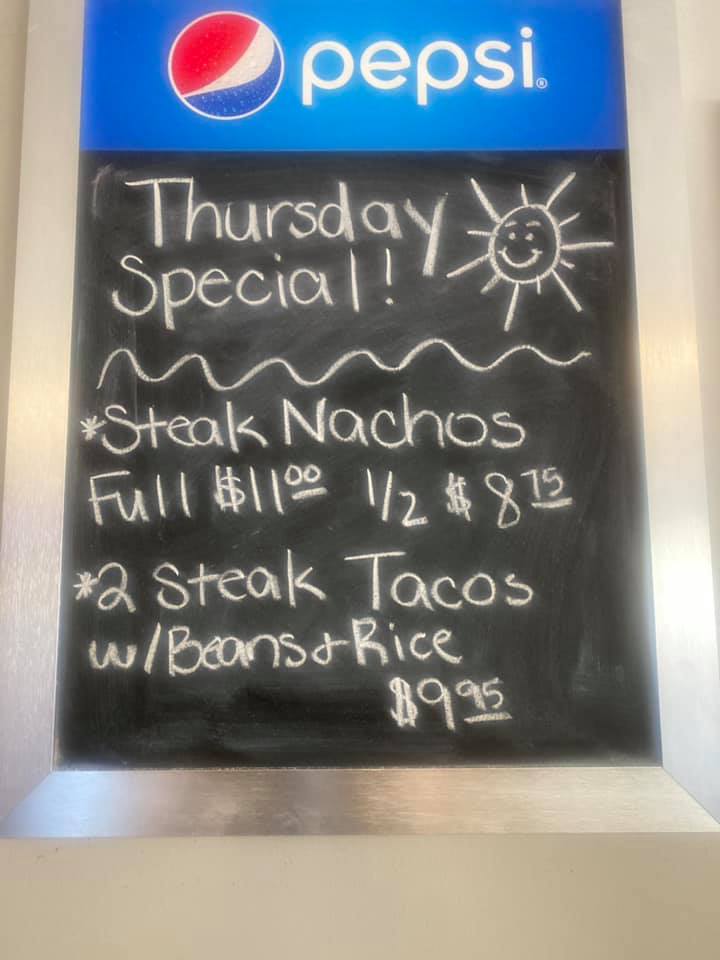 pepsi®
Thursday
Special!
*Steak Nachos
Full $11.00 1/2 $8.75
*2 Steak Tacos
w/Beans & Rice
$9.95